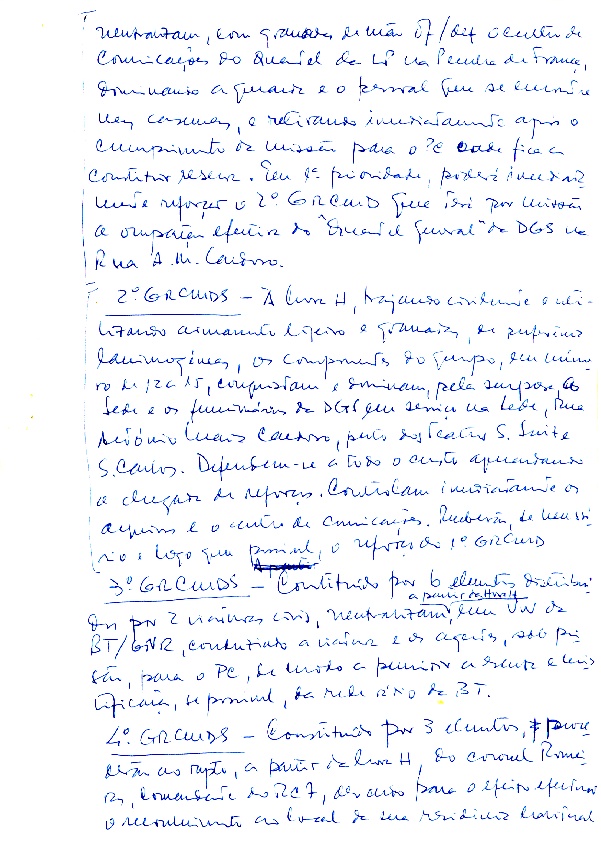 neutralizam, com granadas de mão of/def o centro de
Comunicações do Quartel da LP na Penha de França,
dominando a guarda e o pessoal que se encontre
nas casernas, e retirando imediatamente após o
cumprimento da missão para o PC onde fica a
constituir reserva. Em 1ª prioridade, poderá imediata
mente reforçar o 2º GRCMD que terá por missão
a ocupação efectiva do "Quartel General" da DGS na
Rua A. M. Cardoso.
2º GRCMDS - À hora H, trajando civilmente e uti-
lizando armamento ligeiro e granadas, de preferência
lacrimogéneas, os componentes do grupo, em núme-
ro de 12 a 15, conquistam e dominam, pela surpresa, a
sede e os funcionários da DGS em serviço na sede, Rua
António Maria Cardoso, perto dos Teatros S. Luis e
S. Carlos. Defendem-se a todo o custo aguardando
a chegada de reforços. Controlam imediatamente os
arquivos e o centro de comunicações. Receberão, se necessá-
rio e logo que possível, o reforço do 1º GRCMD
3º GRCMDS - Constituído por 6 elementos distribuí-
a partir da Hora H
dos por 2 viaturas civis, neutralizam, um VW da
BT/GNR, conduzindo a viatura e os agentes, sob pri-
são, para o PC, de modo a permitir a escuta e
, se possível, da rede rádio da BT.
4º GRCMDS - Constituído por 3 elementos, proce-
derão ao rapto, a partir da hora H, do coronel Romei-
ra, comandante do RC7, devendo para o efeito efectuar
o reconhecimento ao local da sua residência